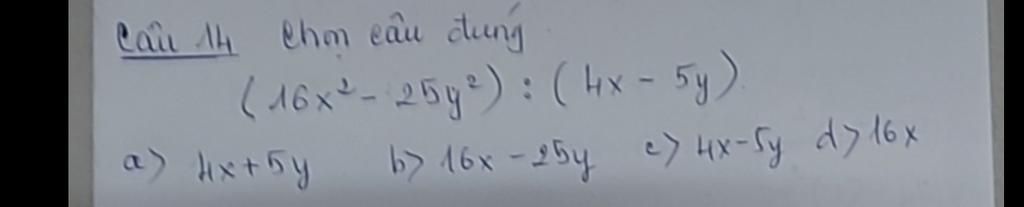 Câu 14 Chọn câu đúng
(16x² - 25y²) : (4x - 5y).
a> 4x+5y b> 16x - 25y c> 4x-5y d> 16x